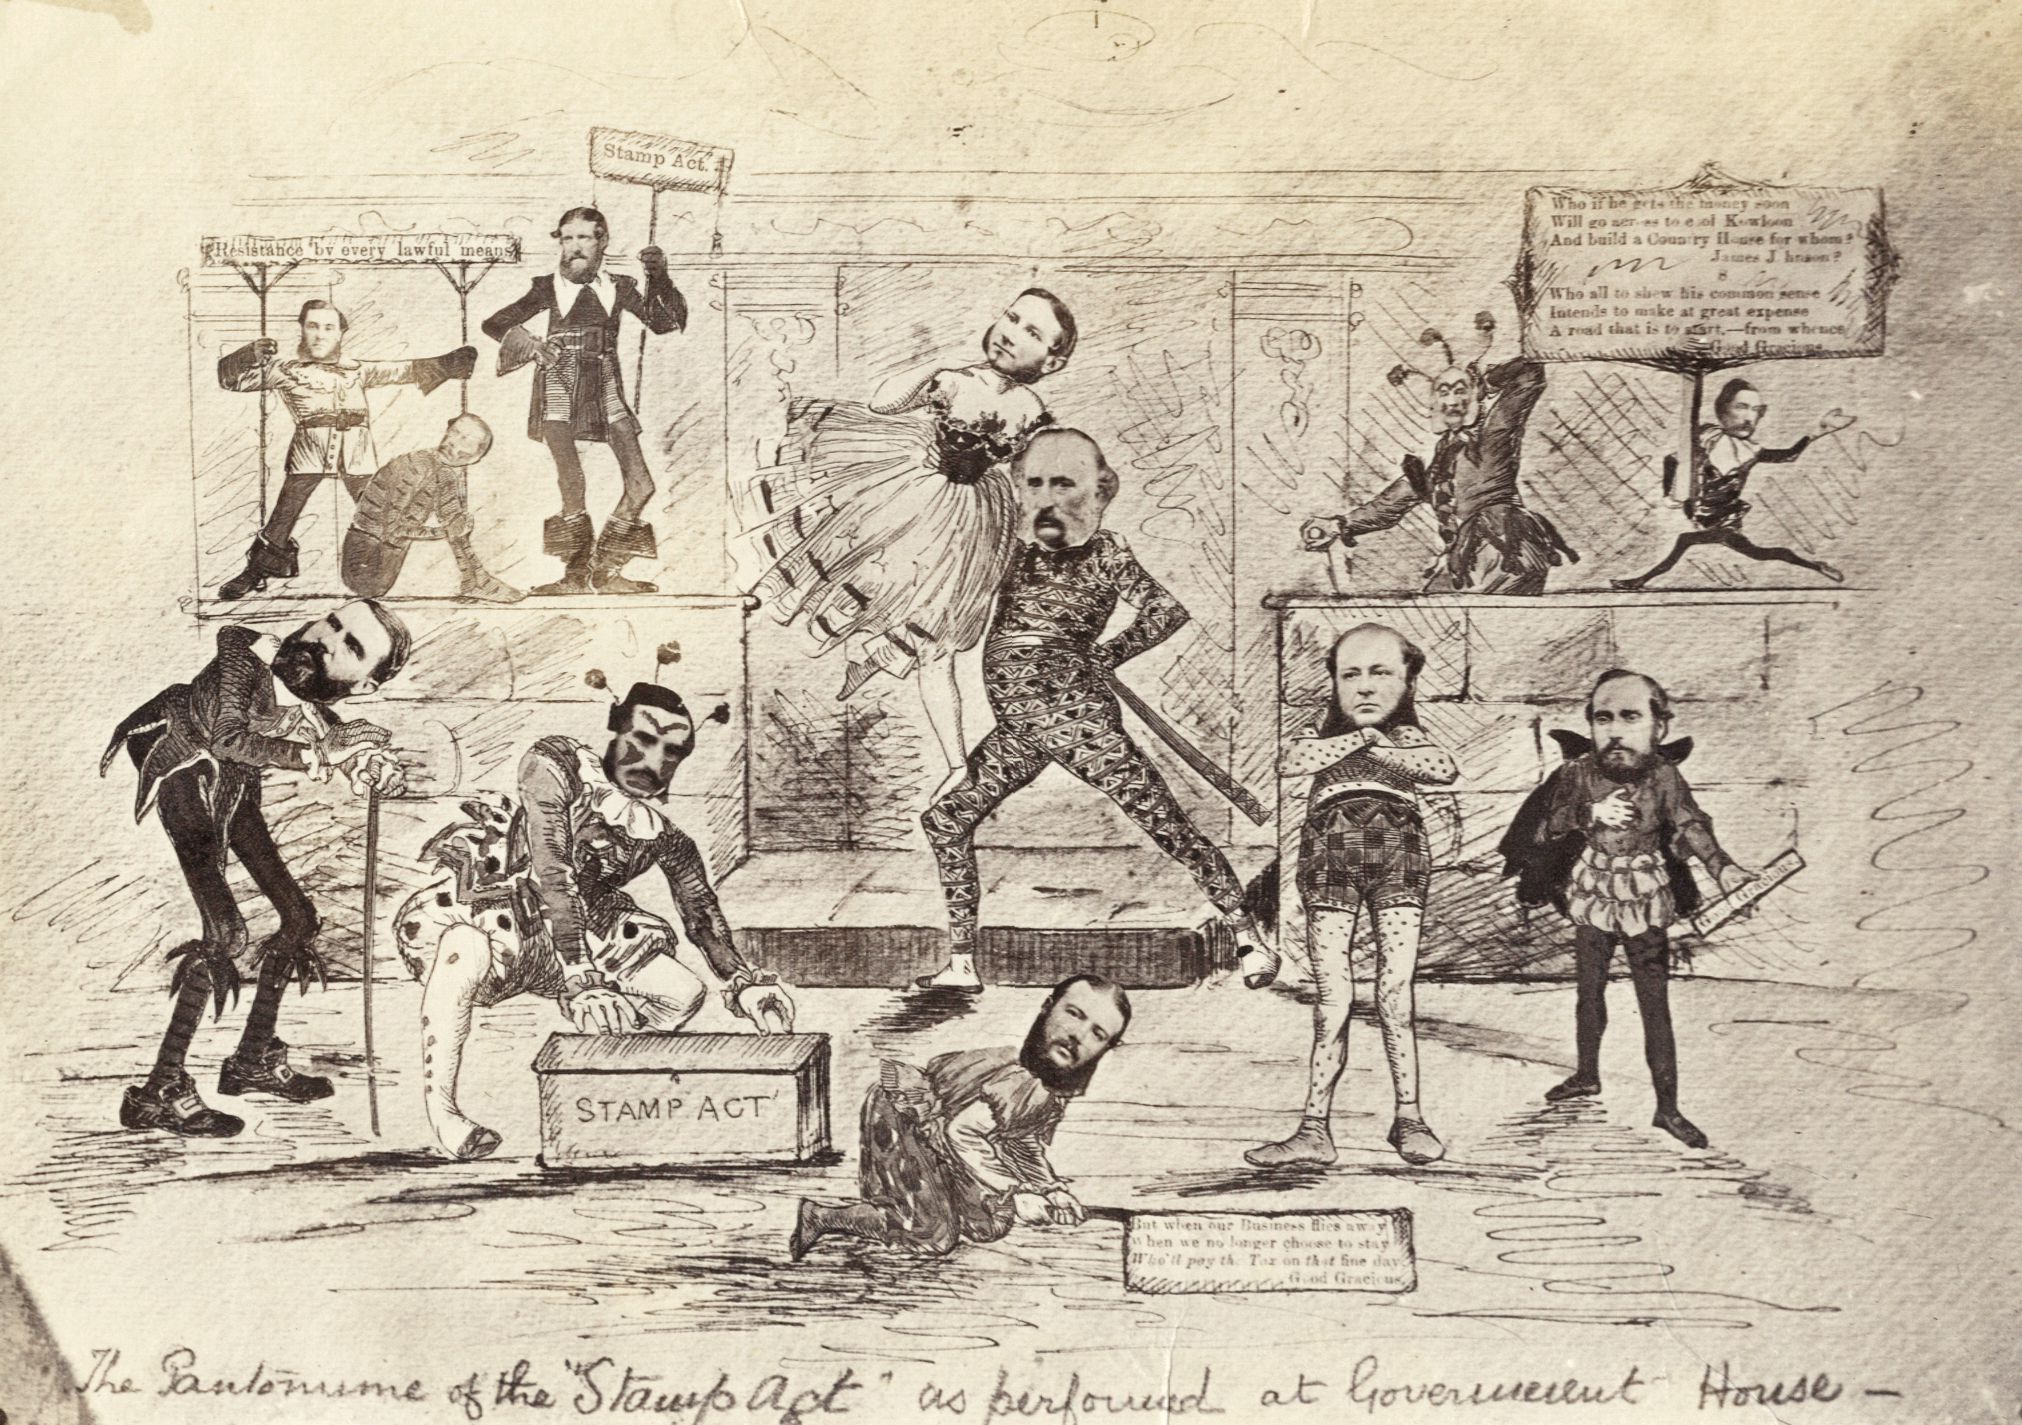 Stamp Act.
Resistance by every lawful means
Who if he gets the money soon
Will go across to cool Kowloon
And build a Country House for whom?
James J hnson?
8
Who all to shew his common sense
Intends to make at great expense
A road that is to start,—from whence
Good Gracious
STAMP ACT
Good Gracious
But when our Business flies away
When we no longer choose to stay
Who'll pay the Tax on that fine day
Good Gracious.
The Pantomime of the "Stamp Act" as performed at Government House —